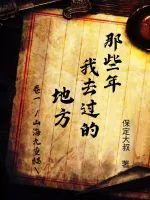 那些年
我去过的
地方
卷一 / 山海九重
保定大叔 著